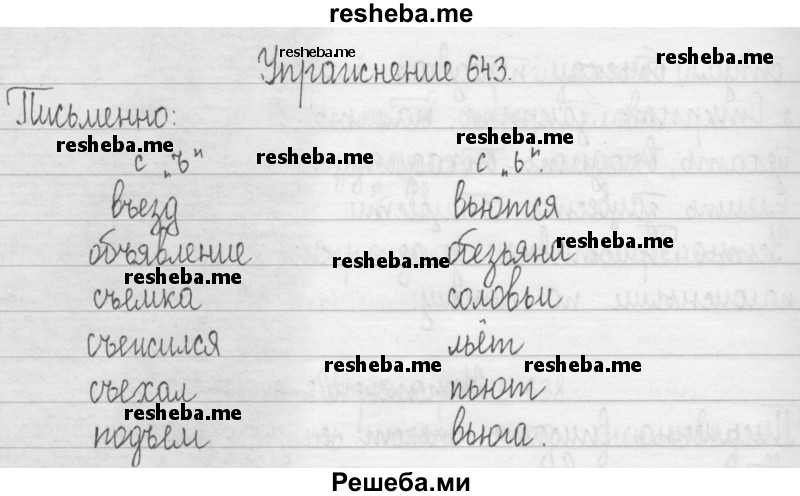 resheba.me
Упражнение 643.
resheba.me
resheba.me
Письменно:
resheba.me resheba.me resheba.me
с „ъ" с „ь".
въезд вьются
объявление обезьяна
resheba.me resheba.me resheba.me
съемка соловьи
съежился льёт
resheba.me resheba.me
съехал пьют
resheba.me
подъем вьюга.
Решеба.ми